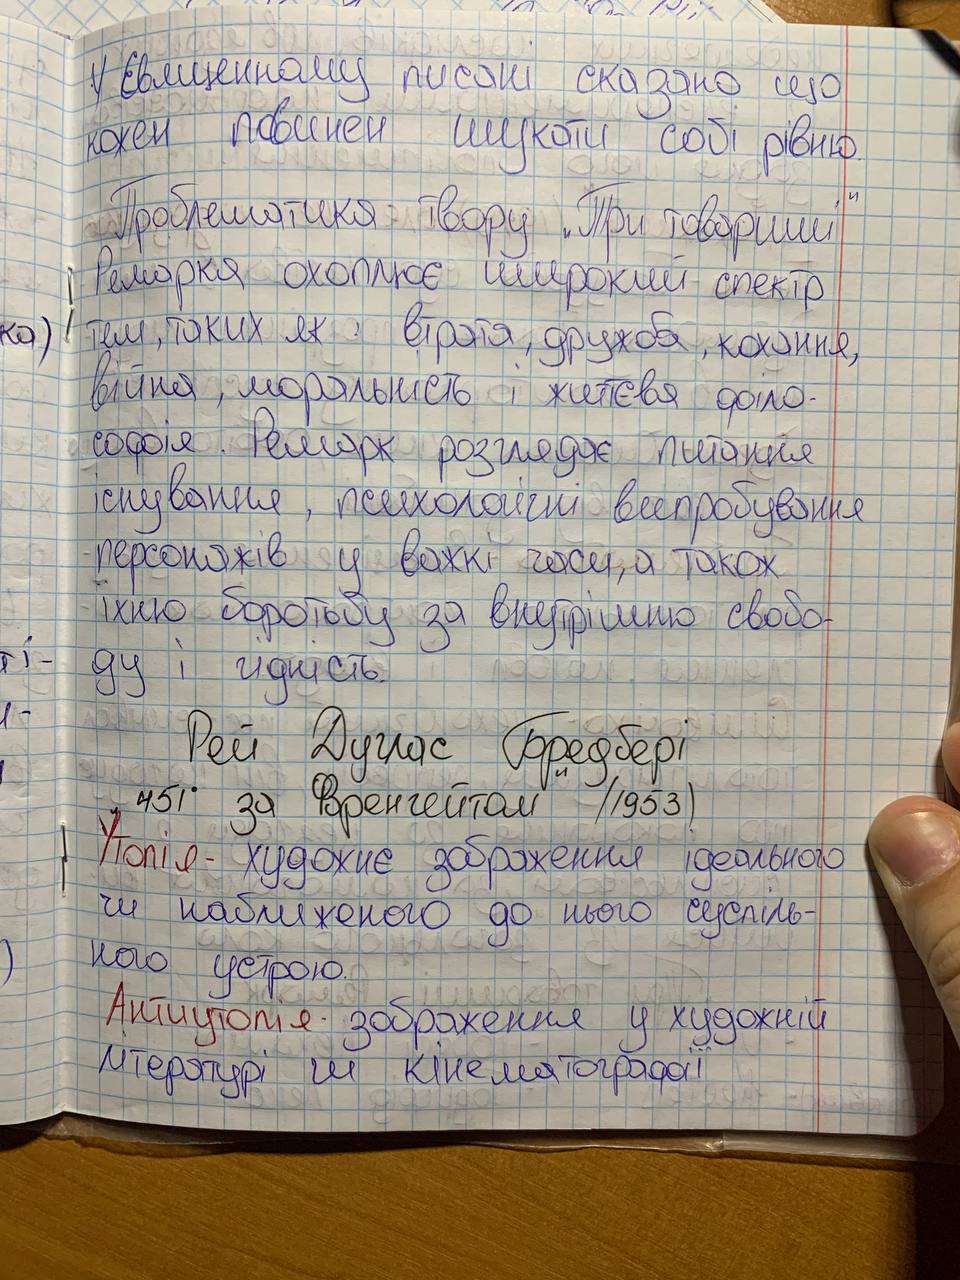 У Євященному писані сказано що
кожен повинен шукати собі рівню.
Проблематика твору „Три товариші"
Ремарка охоплює широкий спектр
тем, таких як: втрата, дружба, кохання,
війна, моральність і життєвя філо-
софія. Ремарк розглядає питання
існування, психологічні випробування
персонажів у важкі часи, а також
їхню боротьбу за внутрішню свобо-
ду і гідність.
Рей Дуглас Бредбері
„451° за Френгейтом" (1953)
Утопія - художнє зображення ідеального
чи наближеного до нього суспіль-
ного устрою.
Антиутопія - зображення у художній
літературі чи кінематографії
ка)
ті-